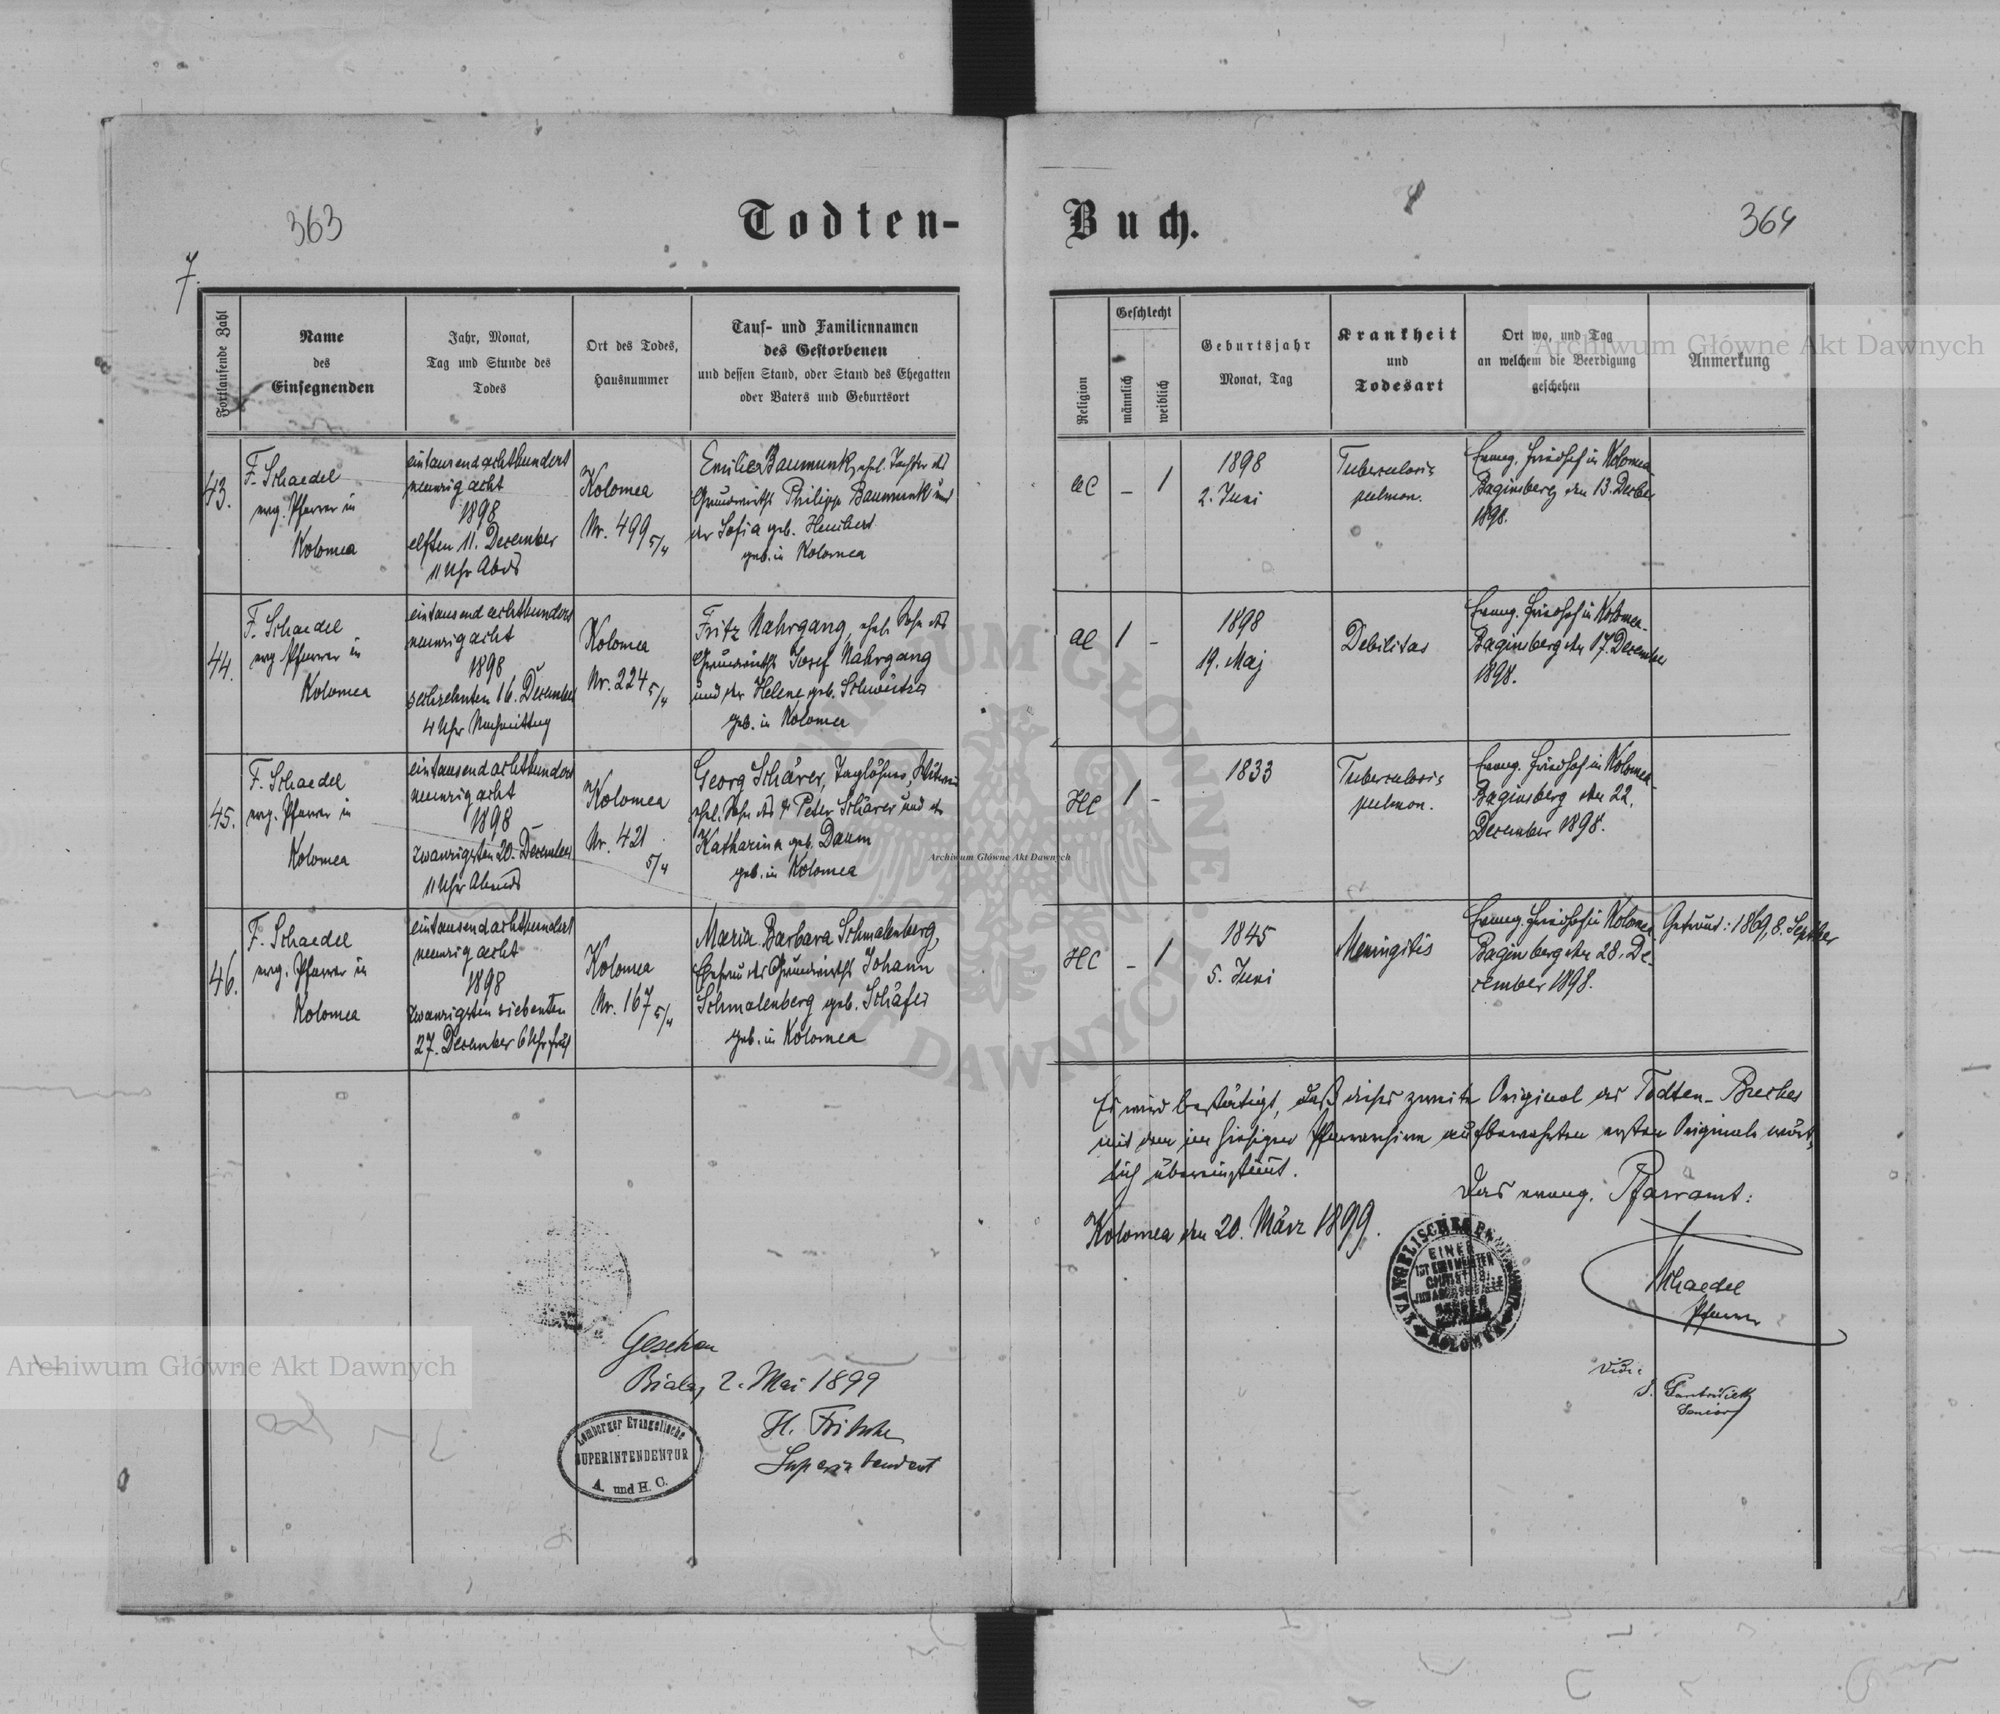 363
Todten-
Buch.
364
7.
Fortlaufende Zahl
Name
des
Einsegnenden
Jahr, Monat,
Tag und Stunde des
Todes
Ort des Todes,
Hausnummer
Tauf- und Familiennamen
des Gestorbenen
und dessen Stand, oder Stand des Ehegatten
oder Vaters und Geburtsort
Religion
Geschlecht
männlich
weiblich
Geburtsjahr
Monat, Tag
Krankheit
und
Todesart
Ort wo, und Tag
an welchem die Beerdigung
geschehen
Anmerkung
43.
F. Schaedel
evg. Pfarrer in
Kolomea
eintausendachthundert
neunzigacht
1898
elften 11. December
11 Uhr Abds
Kolomea
Nr. 499 5/4
Emilie Baumunk, ehel. Tochter des
Grundwirths Philipp Baumunk und
der Sofia geb.
geb. in Kolomea
AC
–
1
1898
2. Juni
Tuberculosis
pulmon.
Evang. Friedhof in Kolomea-
Baginsberg den 13. Decber
1898.
44.
F. Schaedel
evg. Pfarrer in
Kolomea
eintausendachthundert
neunzigacht
1898
sechzehnten 16. December
4 Uhr Nachmittag
Kolomea
Nr. 224 5/4
Fritz Nahrgang, ehel. Sohn des
Grundwirths Josef Nahrgang
und der Helene geb.
geb. in Kolomea
AC
1
–
1898
19. Maj
Debilitas
Evang. Friedhof in Kolomea-
Baginsberg den 17. December
1898.
45.
F. Schaedel
evg. Pfarrer in
Kolomea
eintausendachthundert
neunzigacht
1898
zwanzigsten 20. December
11 Uhr Abends
Kolomea
Nr. 421
5/4
Georg Schärer, Taglöhner, Witwer
ehel. Sohn des † Peter Schärer und der
Katharina geb. Daum
geb. in Kolomea
HC
1
–
1833
Tuberculosis
pulmon.
Evang. Friedhof in Kolomea-
Baginsberg den 22.
December 1898.
46.
F. Schaedel
evg. Pfarrer in
Kolomea
eintausendachthundert
neunzigacht
1898
zwanzigsten siebenten
27. December 6 Uhr früh
Kolomea
Nr. 167 5/4
Maria Barbara Schmalenberg,
Ehefrau des Grundwirths Johann
Schmalenberg geb. Schäfer
geb. in Kolomea
HC
–
1
1845
5. Juni
Meningitis
Evang. Friedhof in Kolomea
Baginsberg den 28. De-
cember 1898.
Getraut: 1869, 8. Septber
Es wird bestätigt, daß dieses zweite Original des Todten-Buches
mit dem im hiesigen Pfarrarchive aufbewahrten ersten Originale wört-
lich übereinstimmt.
Das evang. Pfarramt:
Kolomea den 20. März 1899.
EVANGELISCHES
EINER
IST EUER MEISTER
CHRISTUS
IHR ABER SEID ALLE
BRÜDER
KOLOMEA
Schaedel
Pfarrer
Vidi:
Senior
Gesehen
Biala, 2. Mai 1899
H. Fritsche
Superintendent
Lemberger Evangelische
SUPERINTENDENTUR
A. und H. C.
Archiwum Główne Akt Dawnych
Archiwum Główne Akt Dawnych
Archiwum Główne Akt Dawnych
ARCHIWUM GŁÓWNE AKT DAWNYCH